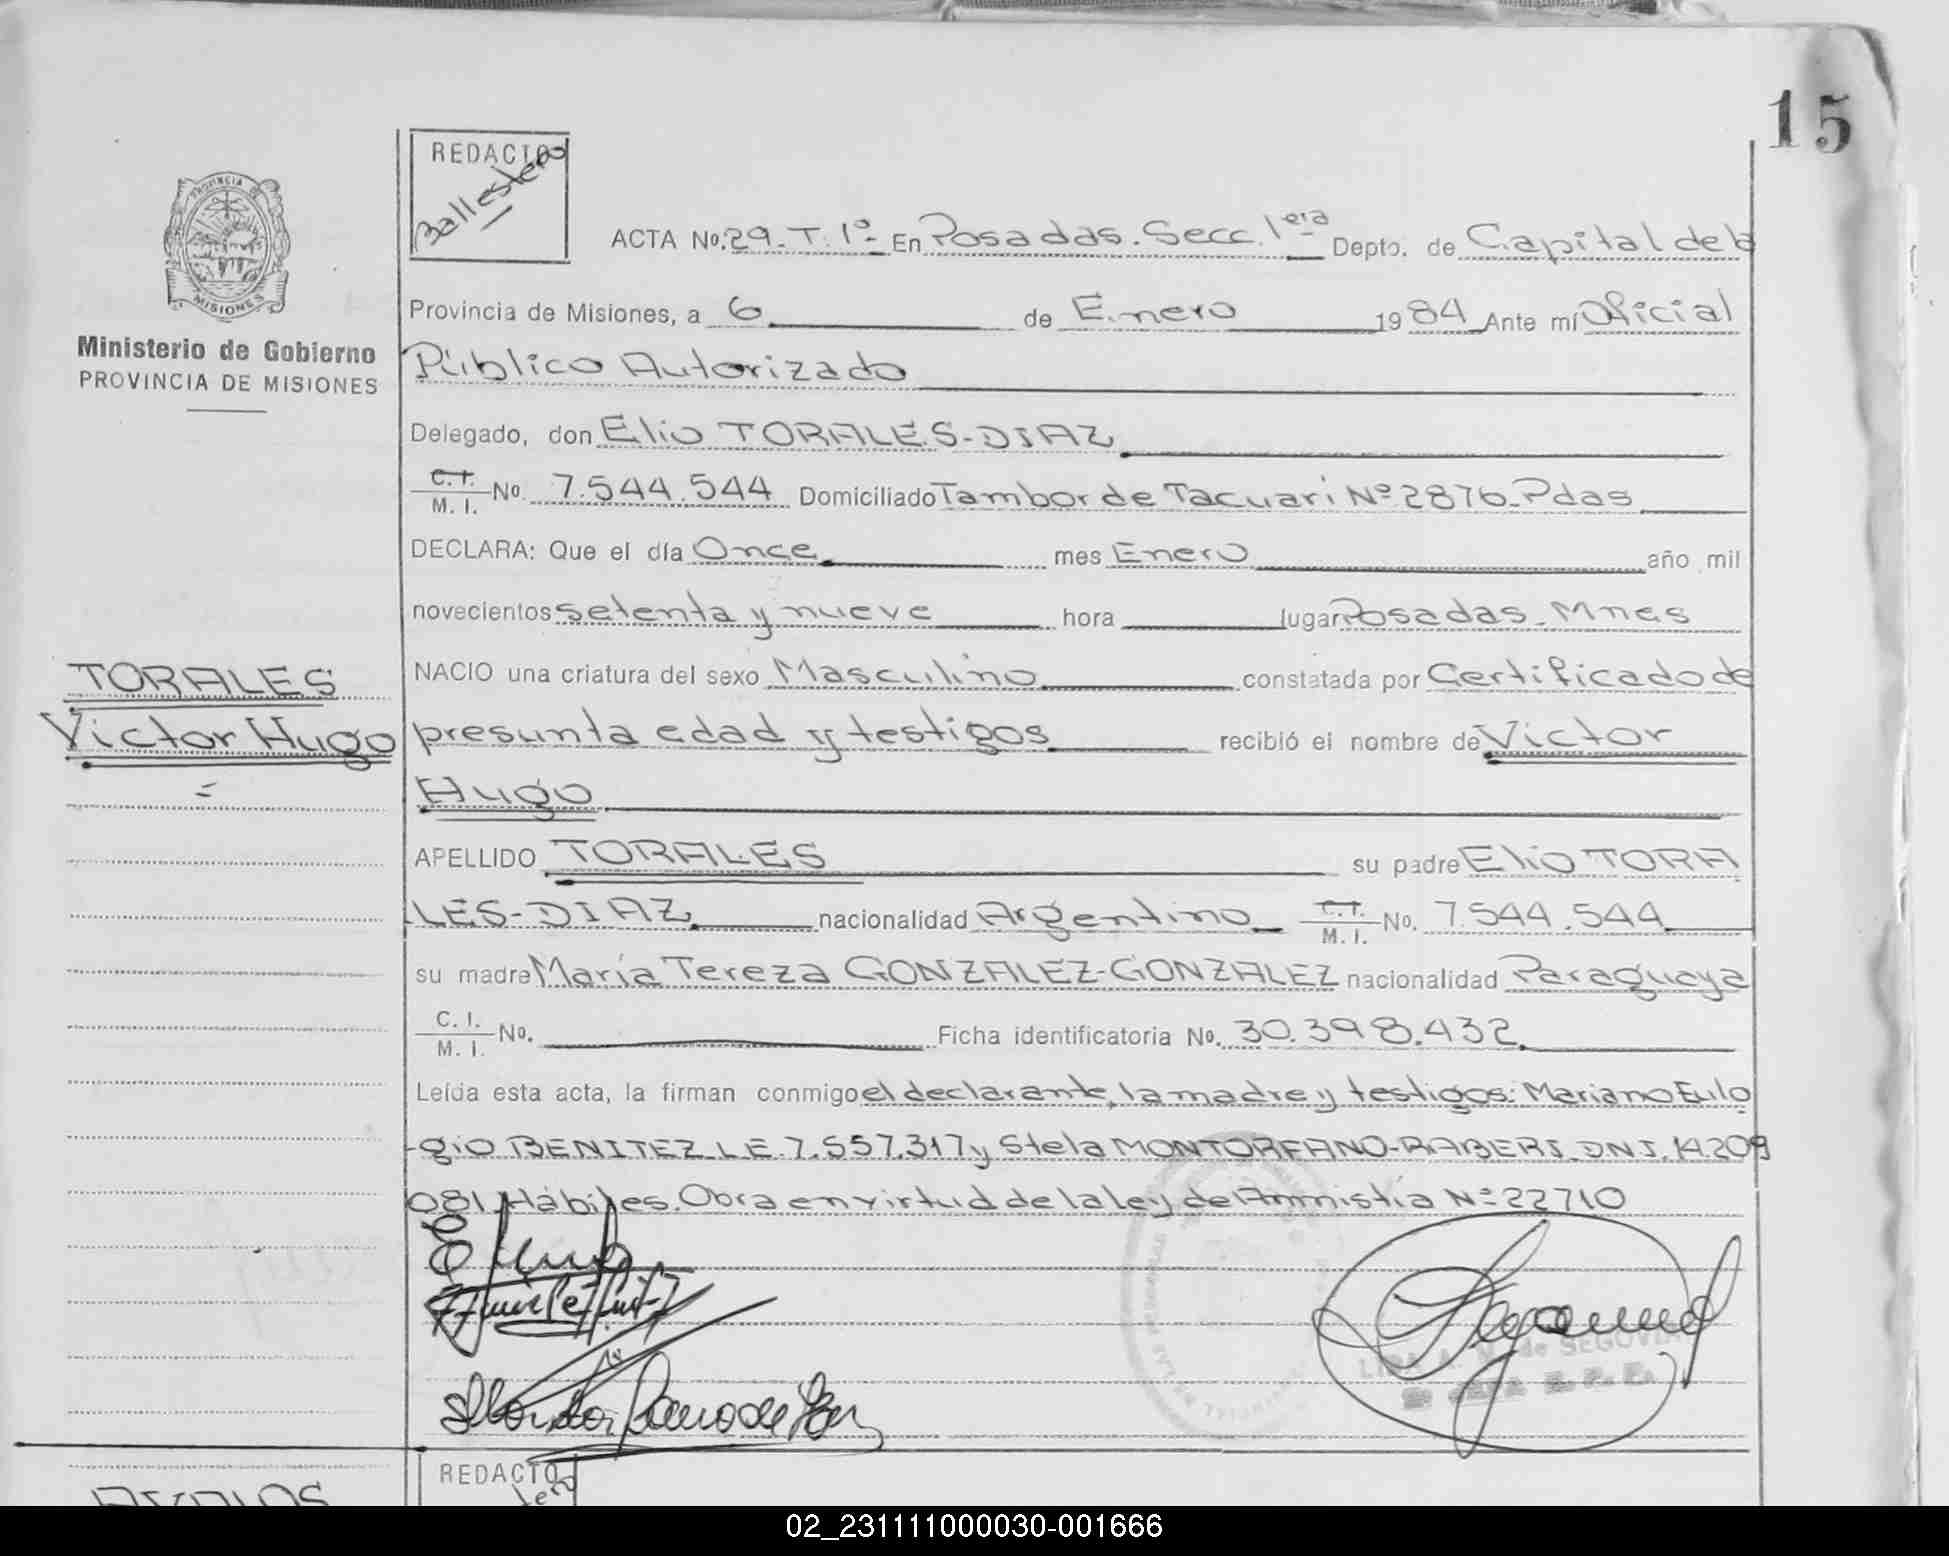 15
REDACTO
Ballestero
ACTA No. 29_T. 1º_ En Posadas. Secc. 1era Depto. de Capital de la
PROVINCIA DE
MISIONES
Provincia de Misiones, a 6 de Enero 1984 Ante mí Oficial
Ministerio de Gobierno
PROVINCIA DE MISIONES
Público Autorizado
Delegado, don Elio TORALES-DIAZ
C.I. M. I. No. 7.544.544 Domiciliado Tambor de Tacuarí Nº 2876_Pdas
DECLARA: Que el día Once mes Enero año mil
novecientos setenta y nueve hora lugar Posadas_Mnes
NACIO una criatura del sexo Masculino constatada por Certificado de
TORALES
Victor Hugo
presunta edad y testigos recibió el nombre de Victor
Hugo
APELLIDO TORALES su padre Elio TORA
LES-DIAZ nacionalidad Argentino C.I. M. I. No. 7.544.544
su madre María Tereza GONZALEZ-GONZALEZ nacionalidad Paraguaya
C. I. M. I. No. Ficha identificatoria No. 30.398.432
Leída esta acta, la firman conmigo el declarante, la madre y testigos: Mariano Eulo
-gio BENITEZ_L.E. 7.557.317 y Stela MONTORFANO-RABERI_DNI. 14.209
081 Hábiles. Obra en virtud de la ley de Amnistía Nº 22710
de SEGOVIA
REDACTO
02_231111000030-001666